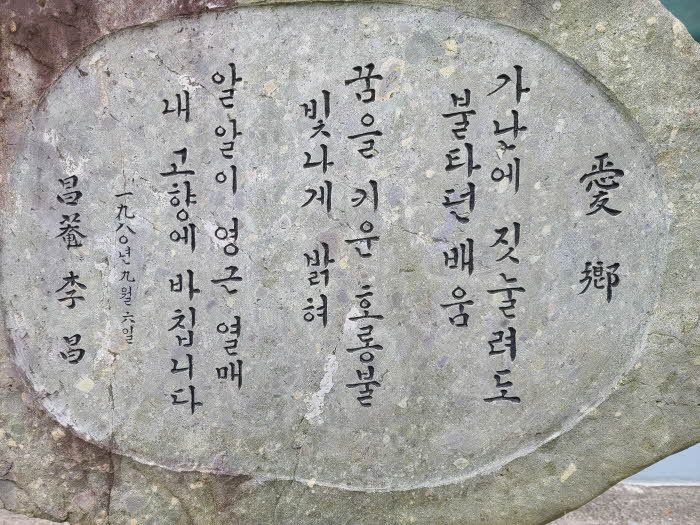 愛鄕
가난에 짓눌려도
불타던 배움
꿈을 키운 호롱불
빛나게 밝혀
알알이 영근 열매
내 고향에 바칩니다
一九八〇년 九월 六일
昌菴 李昌